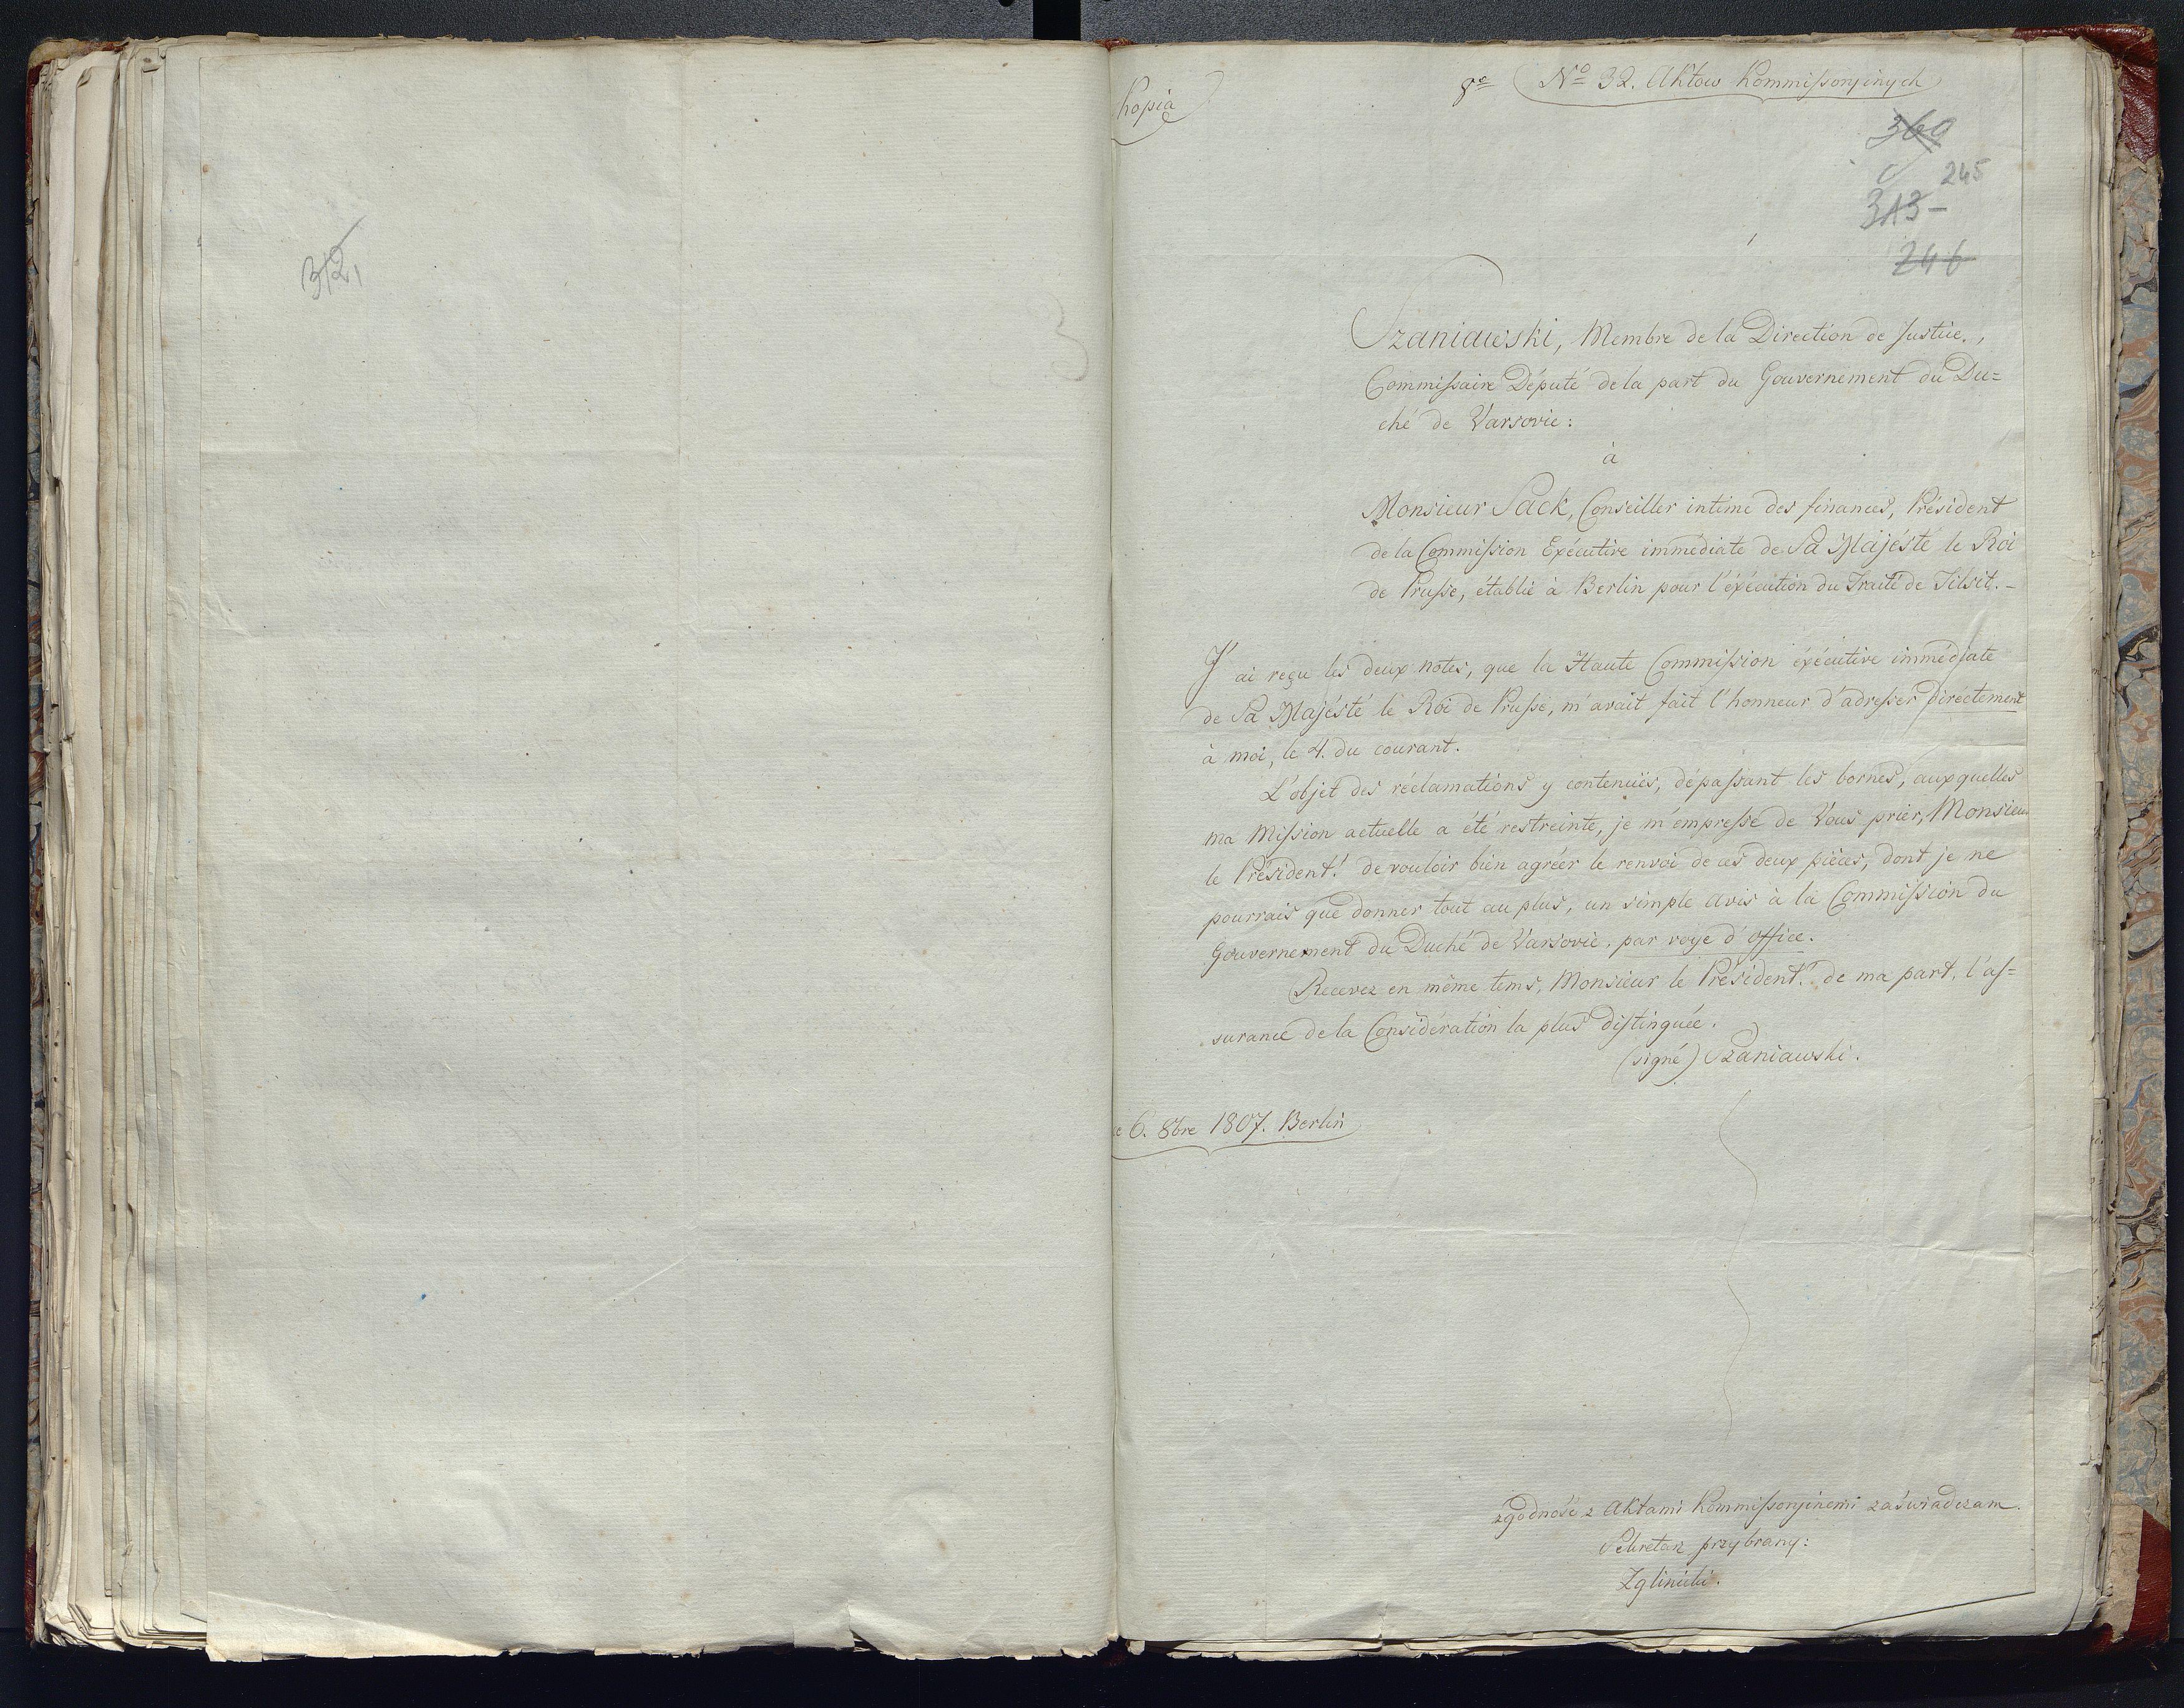 312
Kopia
8e No 32. Aktow Kommissÿinych
369
245
313
246
Szaniawski, Membre de la Direction de Justice,
Commissaire Député de la part du Gouvernement du Du=
ché de Varsovie:
à
Monsieur Sack, Conseiller intime des finances, Président
de la Commission Exécutive immédiate de Sa Majésté le Roi
de Prusse, établie à Berlin pour l'éxécution du Traité de Tilsit.-
J'ai reçu les deux notes, que la Haute Commission éxécutive immédiate
de Sa Majésté le Roi de Prusse, m'avait fait l'honneur d'adresser directement
à moi, le 4. du courant.
L'objet des réclamations y contenuës, dépassant les bornes, auxquelles
ma Mission actuelle a été restreinte, je m'empresse de Vous prier, Monsieur
le Président! de vouloir bien agréer le renvoi de ces deux pièces, dont je ne
pourrais que donner tout au plus, un simple avis à la Commission du
Gouvernement du Duché de Varsovie, par voye d'office.
Recevez en même tems, Monsieur le Président! de ma part, l'as=
surance de la Considération la plus distinguée.
(signé) Szaniawski.
le 6. 8bre 1807. Berlin
zgodność z Aktami Kommissÿinemi zaświadczam.
Sekretarz przybrany:
Zglinicki.